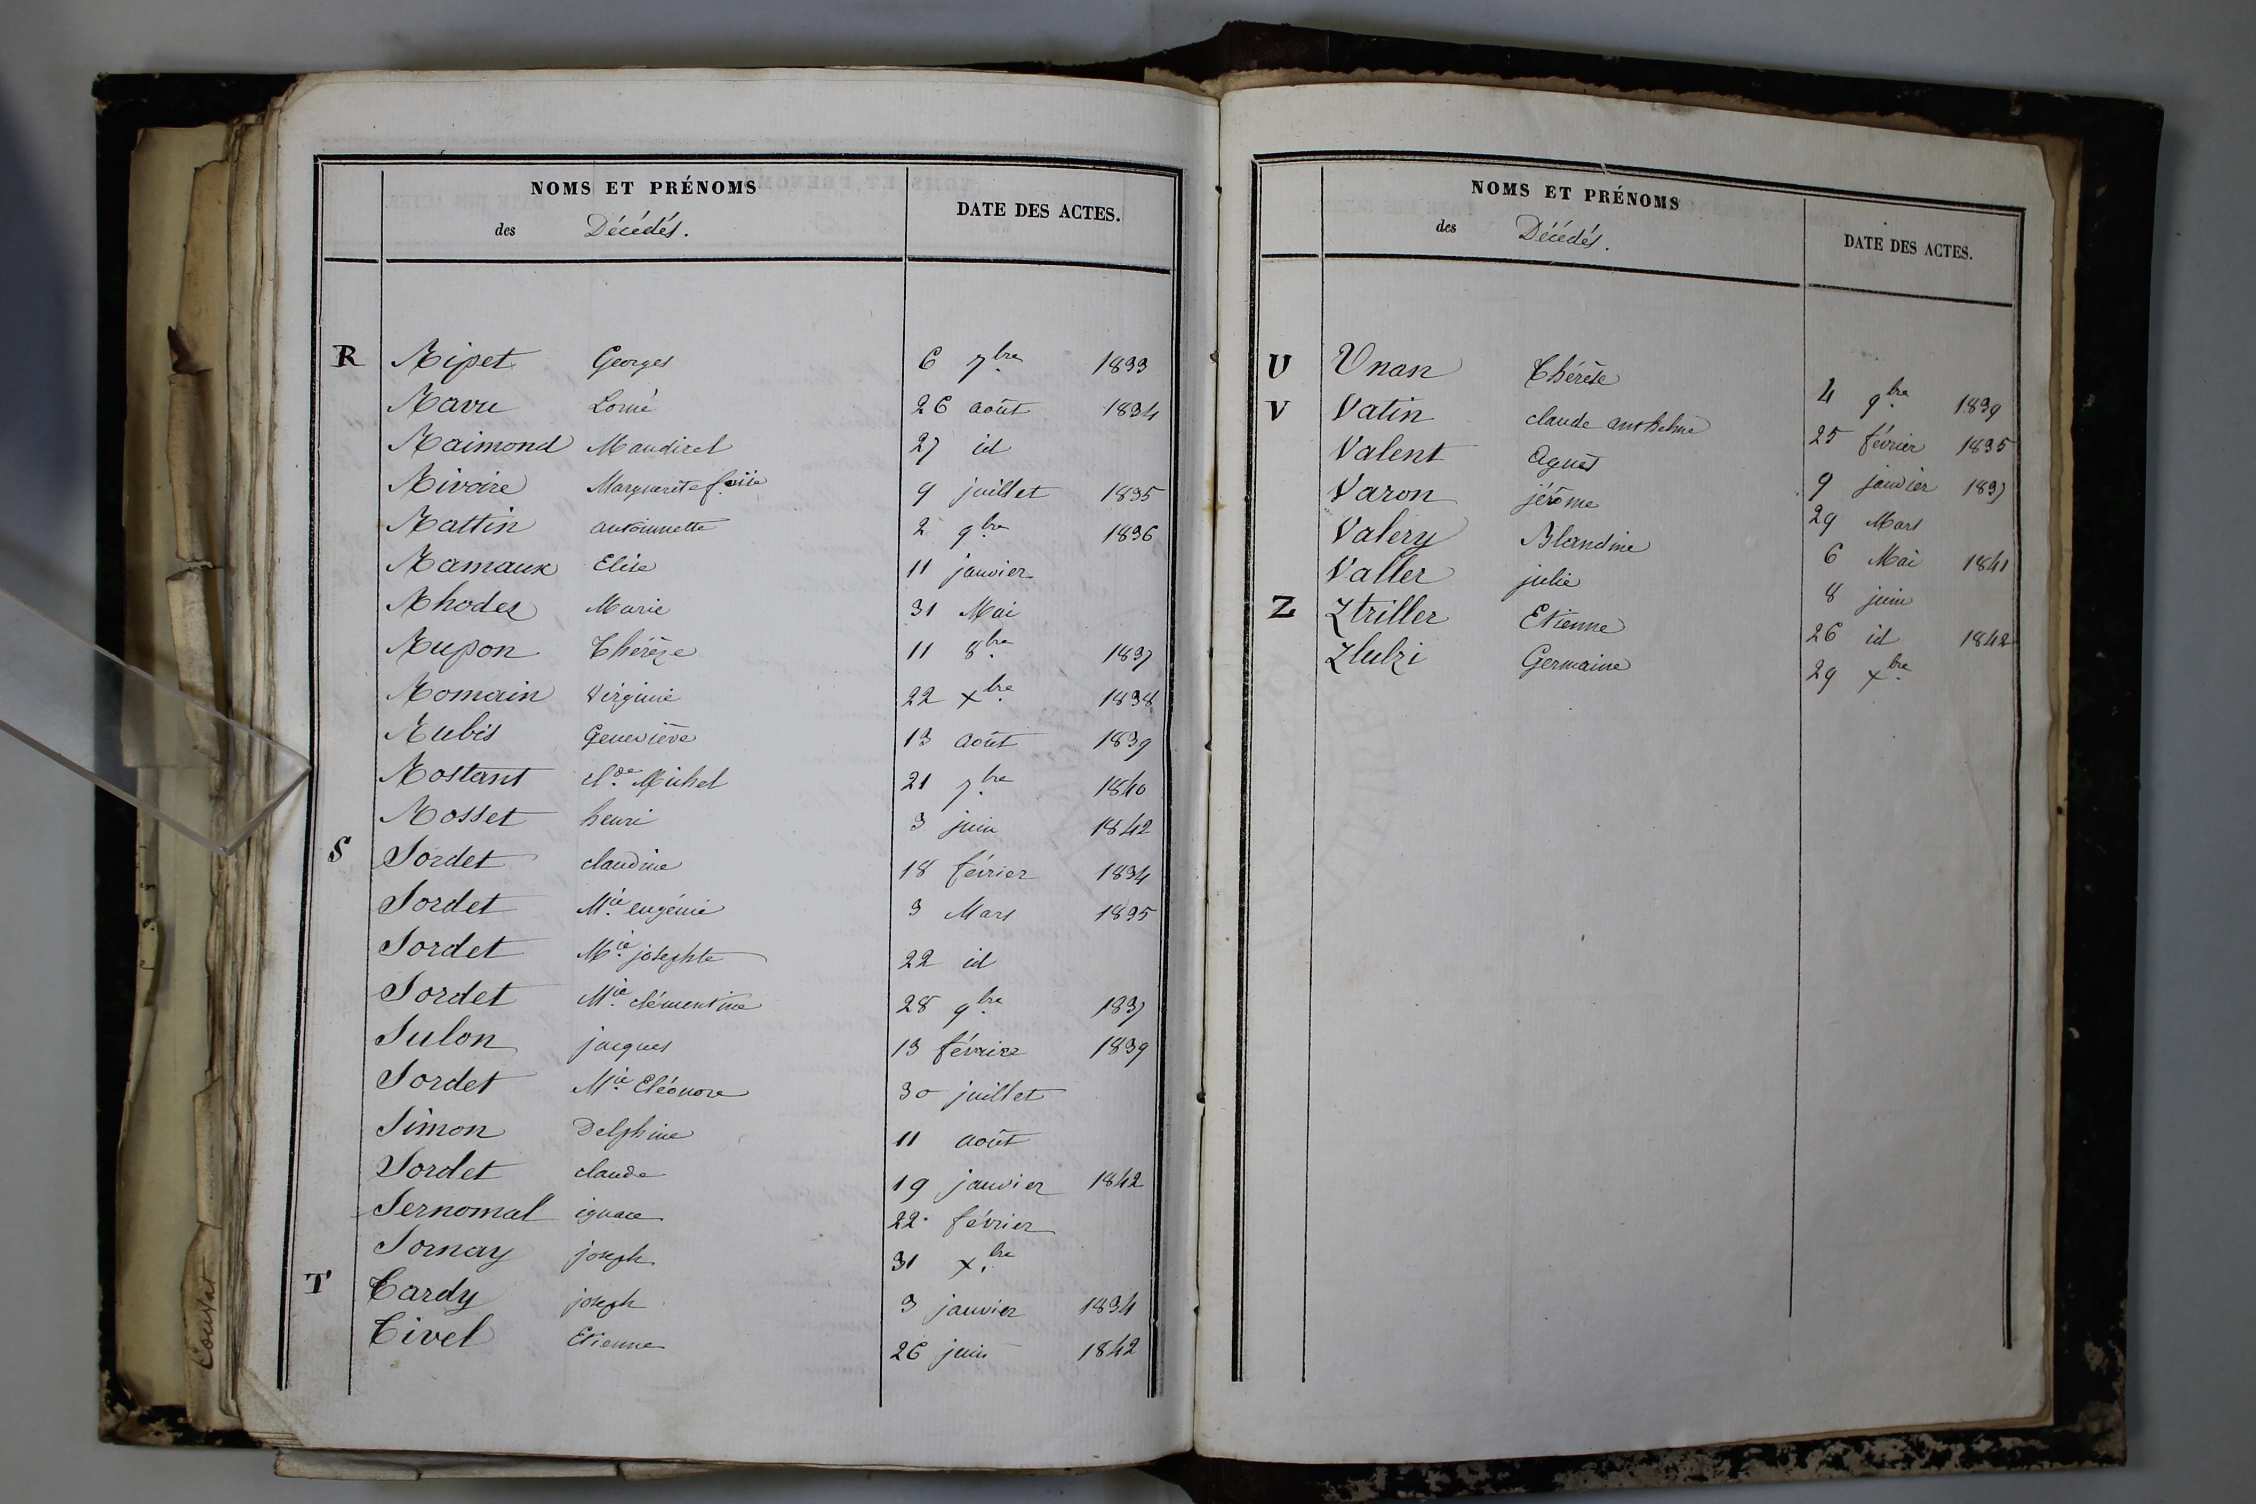 NOMS ET PRÉNOMS
des Décédés.
DATE DES ACTES.
R Ripet Georges 6 7bre 1833
Ravu Lorné 26 août 1834
Raimond Maudirel 27 id
Rivoire Marguerite 9 juillet 1835
Rattin antoinnette 2 9bre 1836
Ramaux Elise 11 janvier
Rhodes Marie 31 Mai
Rupon Thérèze 11 8bre 1837
Romain Virginie 22 xbre 1838
Rubis Geneviève 13 août 1839
Rostant Cl.de Michel 21 7bre 1840
Rosset henri 3 juin 1842
S Sordet claudine 18 février 1834
Sordet M.ie eugénie 3 Mars 1835
Sordet M.ie josephte 22 id
Sordet M.ie clémentine 28 9bre 1837
Sulon jacques 13 février 1839
Sordet M.ie Eléonore 30 juillet
Simon Delphine 11 août
Sordet claude 19 janvier 1842
Sernomal ignace 22 février
Sornay joseph 31 xbre
T Tardy joseph 3 janvier 1834
Tivel Etienne 26 juin 1842
Coutat
NOMS ET PRÉNOMS
des Décédés.
DATE DES ACTES.
U Unan Thérèse 4 9bre 1839
V Vatin claude anthelme 25 février 1835
Valent Agnès 9 janvier 1837
Varon jérôme 29 Mars
Valery Blandine 6 Mai 1841
Valler julie 8 juin
Z Ztriller Etienne 26 id 1842
Zlubzi Germaine 29 xbre